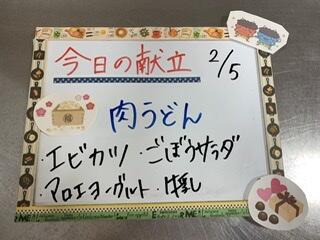 今日の献立 2/5
肉うどん
・エビカツ ・ごぼうサラダ
・アロエヨーグルト ・汁無し